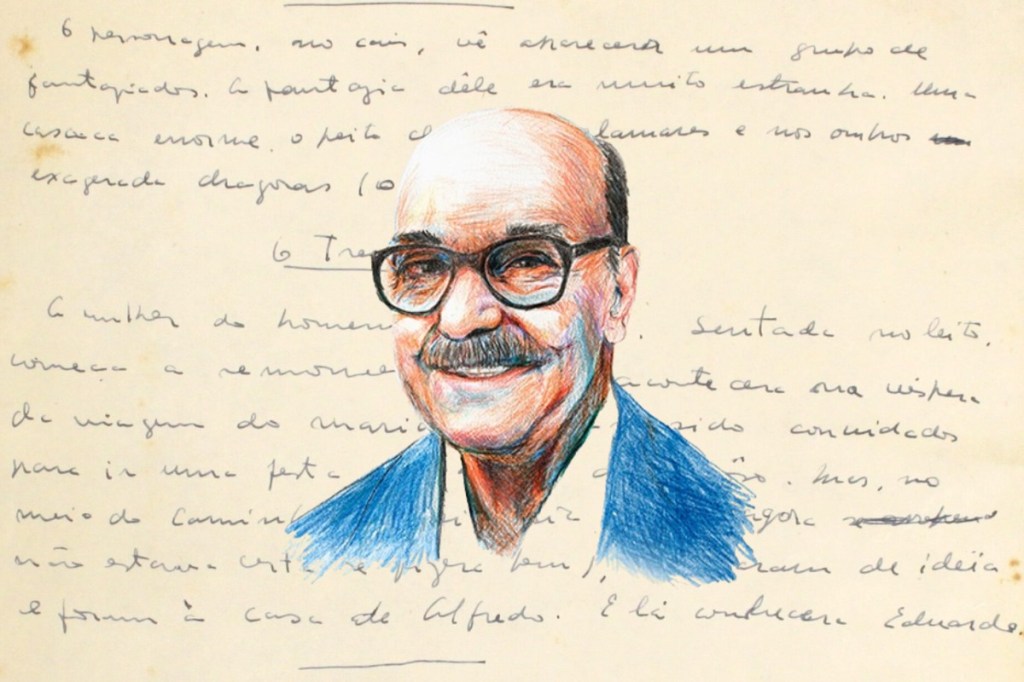 O personagem, no cais, vê aparecerer um grupo de
fantasiados. A fantasia dêle era muito estranha. Uma
casaca enorme, o peito lamares e nos ombros
exagerada dragonas (o
O Tre
A mulher do homem . Sentada no leito,
começa a rememo acontecera na véspera
da viagem do mari sido convidados
para ir uma festa ão. Mas, no
meio do camin agora
não estava certa se fizera bem, eram de idéia
e foram à casa de Alfredo. E lá conhecera Eduardo.